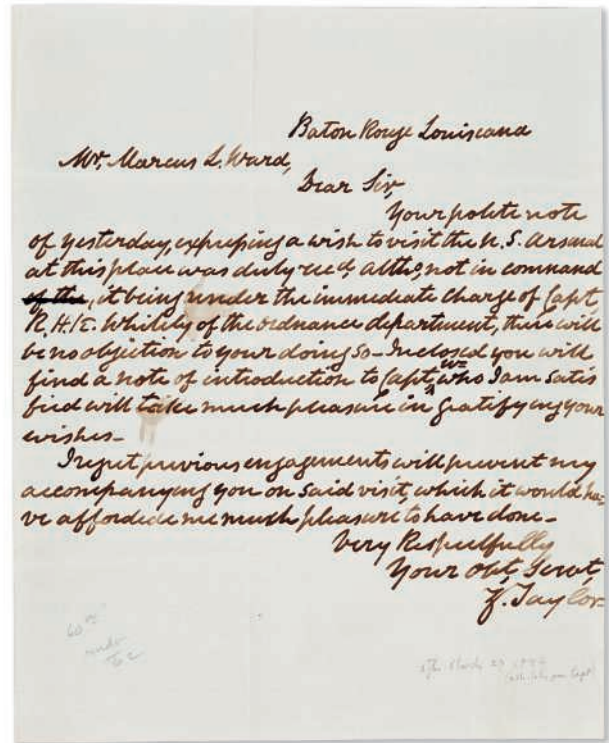 Baton Rouge Louiseand
Mr. Marcus L. Ward,
Dear Sir,
Your polite note
of yesterday, expressing a wish to visit the U. S. Arsenal
at this place was duly recd, altho, not in command
of the, it being under the immediate charge of Capt,
R. H. K. Whitely of the ordnance department, there will
be no objection to your doing so - Inclosed you will
find a note of introduction to Capt, W. who I am satis
fied will take much pleasure in gratifying your
wishes -
I regret previous engagements will prevent my
accompanying you on said visit, which it would ha-
ve afforded me much pleasure to have done -
Very Respectfully
Your Obt, Servt,
Z. Taylor
60